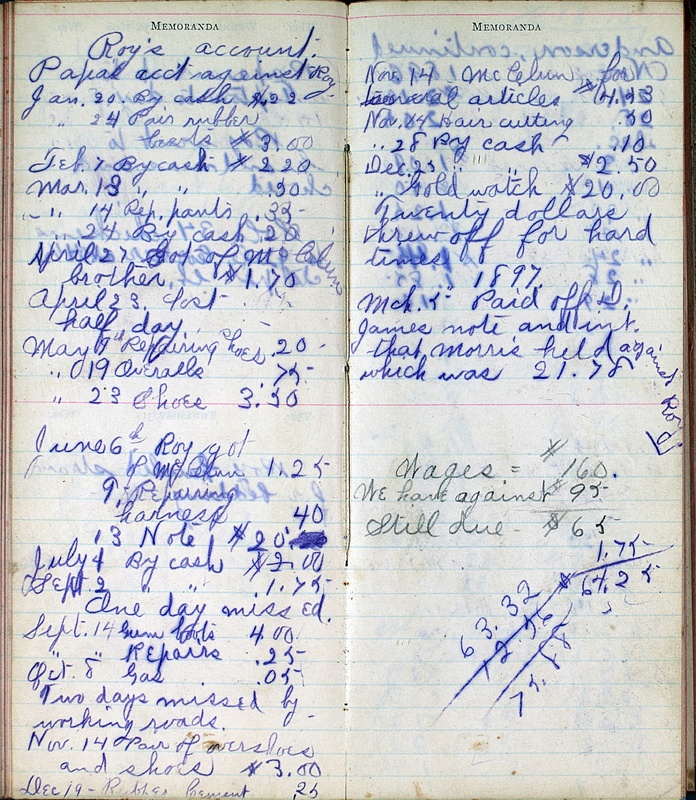 MEMORANDA
Roy's account.
Papa's acct against Roy
Jan. 20. By cash $
" 24 Pair rubber
boots $3.00
Feb. 7 By cash $2.20
Mar. 13 " " .30
" 14 Rep. pants .35
" 24 By cash 20
April 27 Got of Mc
brother $1.70
April 23. Lost
half day
May 9th Repairing shoes .20
" 19 Overalls .75
" 23 Shoes 3.50
June 6th Roy got
of 1.25
9, Repairing
harness 40
13 Note $20
July 4 By cash $2.00
Sept. 2 " " 1.75
One day missed.
Sept. 14 Gum boots 4.00
" " Repairs .25
Oct. 8 Gas .05
Two days missed by
working roads.
Nov. 14 Pair of overshoes
and shoes $3.00
Dec 19 - Rubber Cement 25
MEMORANDA
Nov. 14 for
several articles
Nov. 24 Hair cutting
" 28 By cash 10
Dec. 23 " " $2.50
" Gold watch $20.00
Twenty dollars
threw off for hard
times.
1897
Mch. 5 Paid off
James note and int.
that Morris held against Roy
which was 21.78
Wages = $160.
We have against $95
Still due - $65
1.75
$
63.32
12.56
75.88